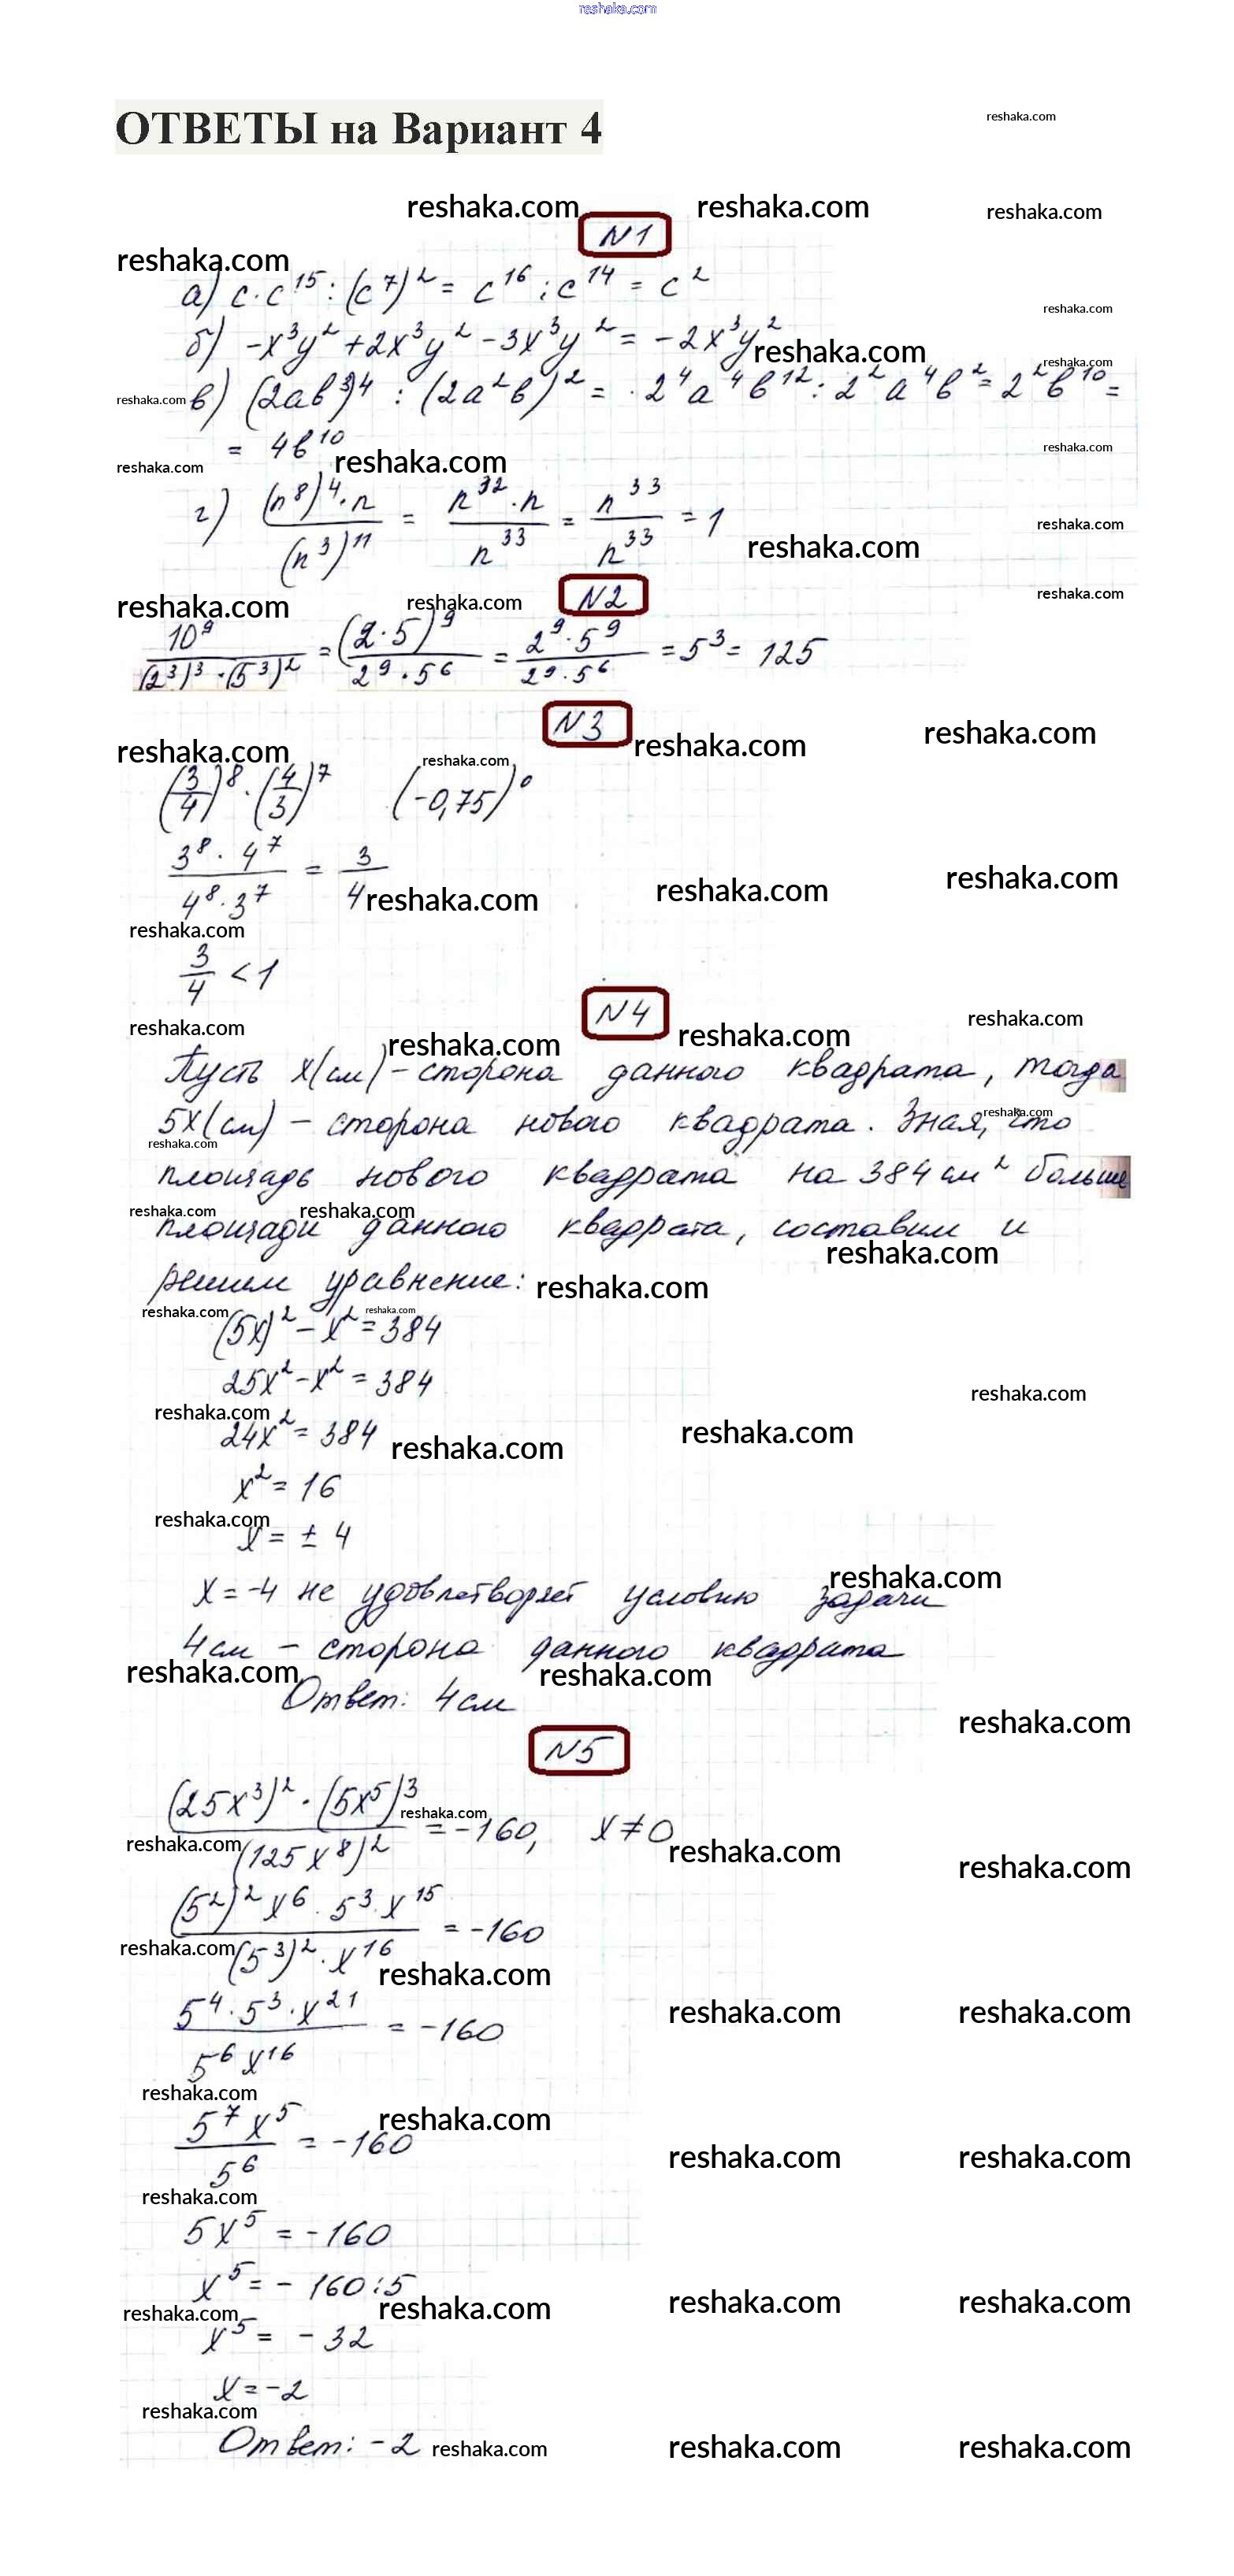 reshaka.com
ОТВЕТЫ на Вариант 4
reshaka.com
reshaka.com reshaka.com reshaka.com
N1
reshaka.com
а) c·c^15 : (c^7)^2 = c^16 : c^14 = c^2
reshaka.com
б) -x^3y^2 + 2x^3y^2 - 3x^3y^2 = -2x^3y^2
reshaka.com
reshaka.com
reshaka.com
в) (2ab^3)^4 : (2a^2b)^2 = ·2^4a^4b^12 : 2^2a^4b^2 = 2^2b^10 =
= 4b^10
reshaka.com
reshaka.com reshaka.com
г) (n^8)^4·n / (n^3)^11 = n^32·n / n^33 = n^33 / n^33 = 1
reshaka.com
reshaka.com
reshaka.com
reshaka.com reshaka.com
N2
10^9 / (2^3)^3·(5^3)^2 = (2·5)^9 / 2^9·5^6 = 2^9·5^9 / 2^9·5^6 = 5^3 = 125
N3
reshaka.com reshaka.com
reshaka.com reshaka.com
(3/4)^8 · (4/3)^7 (-0,75)^0
3^8·4^7 / 4^8·3^7 = 3/4
reshaka.com reshaka.com reshaka.com
reshaka.com
3/4 < 1
N4
reshaka.com reshaka.com reshaka.com reshaka.com
Пусть x(см) - сторона данного квадрата, тогда
reshaka.com
5x(см) - сторона нового квадрата. Зная, что
reshaka.com
площадь нового квадрата на 384 см^2 больше
reshaka.com reshaka.com
площади данного квадрата, составим и
reshaka.com
решим уравнение:
reshaka.com
reshaka.com reshaka.com
(5x)^2 - x^2 = 384
25x^2 - x^2 = 384
reshaka.com
reshaka.com
24x^2 = 384
reshaka.com reshaka.com
x^2 = 16
reshaka.com
x = ± 4
reshaka.com
x = -4 не удовлетворяет условию задачи
4см - сторона данного квадрата
reshaka.com reshaka.com
Ответ: 4см
reshaka.com
N5
(25x^3)^2·(5x^5)^3 / (125x^8)^2 = -160, x≠0
reshaka.com
reshaka.com reshaka.com reshaka.com
(5^2)^2x^6·5^3·x^15 / (5^3)^2·x^16 = -160
reshaka.com reshaka.com
5^4·5^3·x^21 / 5^6x^16 = -160
reshaka.com reshaka.com
reshaka.com
5^7x^5 / 5^6 = -160
reshaka.com
reshaka.com reshaka.com
reshaka.com
5x^5 = -160
x^5 = - 160:5
reshaka.com reshaka.com reshaka.com reshaka.com
x^5 = - 32
x = -2
reshaka.com
Ответ: -2
reshaka.com reshaka.com reshaka.com